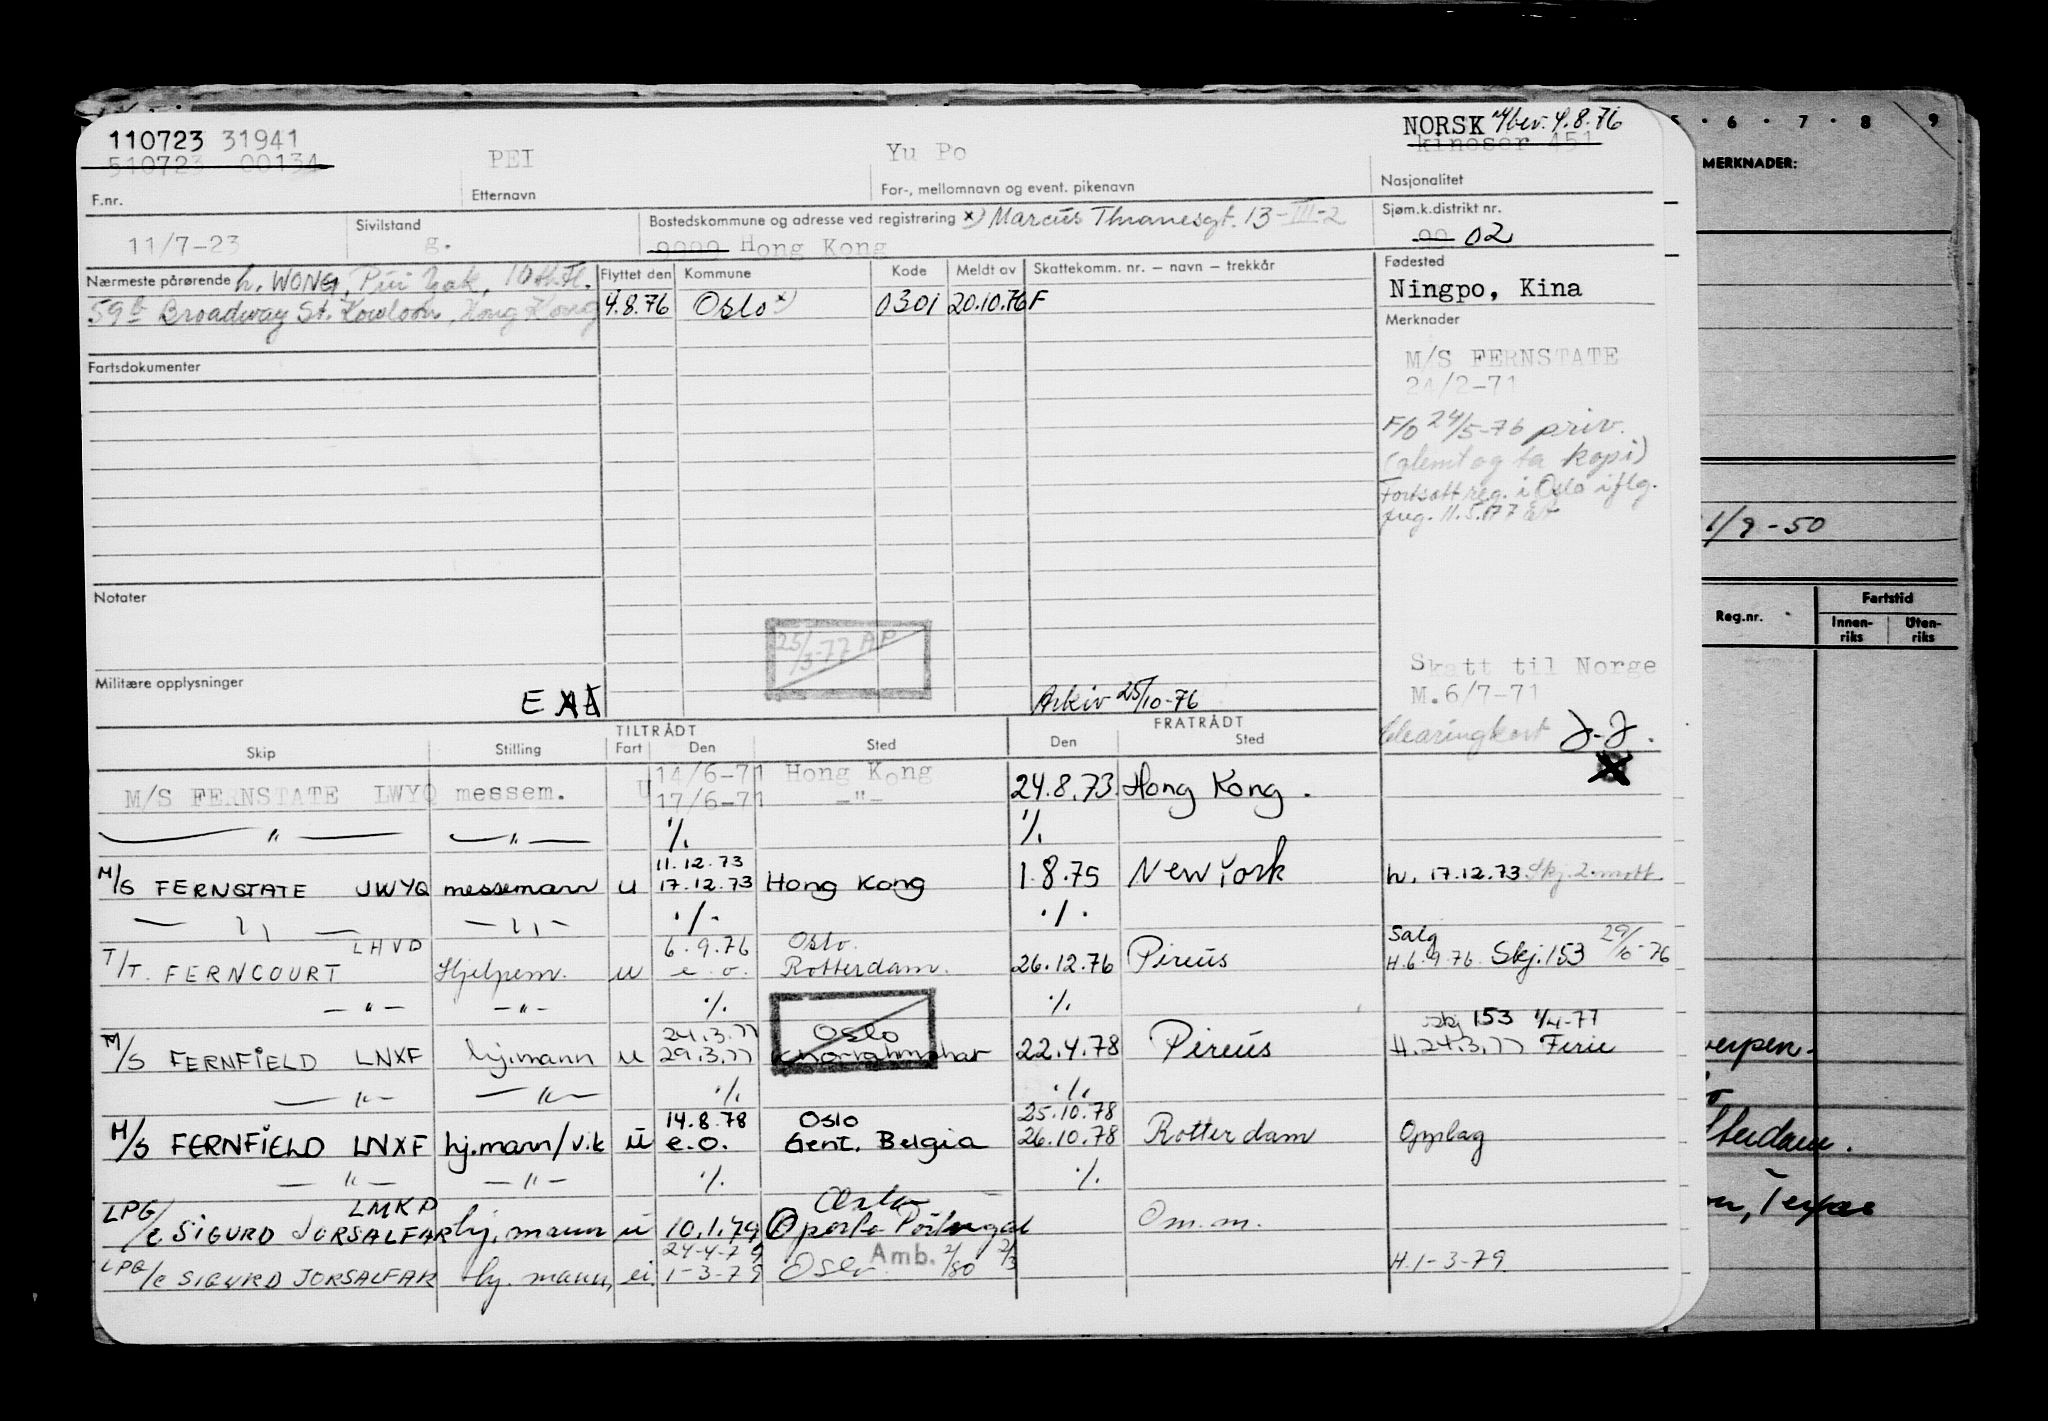 110723 31941
510723 00134
PEI
Yu Po
NORSK 4/8.76
kineser 451
F.nr.
Etternavn
For-, mellomnavn og event. pikenavn
Nasjonalitet
11/7-23
Sivilstand
g.
Bostedskommune og adresse ved registrering x) Marcus Thranesgt. 13-III-2
9999 Hong Kong
Sjøm.k.distrikt nr.
99 02
Nærmeste pårørende h. WONG, Pui Yak, 10th Fl.
59b Broadway St. Kowloon, Hong Kong
Flyttet den Kommune Kode Meldt av Skattekomm. nr. — navn — trekkår
4.8.76 Oslo x) 0301 20.10.76 F
Fødested
Ningpo, Kina
Merknader
M/S FERNSTATE
24/2-71
F/O 24/5-76 priv.
(glemt og ta kopi)
Fortsatt reg. i Oslo iflg.
11.5.77
Fartsdokumenter
Notater
25/3-77 AP
Militære opplysninger
E
Arkiv 25/10-76
Skatt til Norge
M.6/7-71
Clearingkort J.J.
TILTRÅDT FRATRÅDT
Skip Stilling Fart Den Sted Den Sted
14/6-71 Hong Kong
M/S FERNSTATE LWYQ messem. U 17/6-71 —"— 24.8.73 Hong Kong.
—"— —"— ·/. ·/.
11.12.73
M/S FERNSTATE JWYQ messemann u 17.12.73 Hong Kong 1.8.75 New York h. 17.12.73 Skj. 2. mott.
—"— —"— ·/. ·/.
LHVD 6.9.76 Oslo. Salg 29/10-76
T/T. FERNCOURT Hjelpem. u e.o. Rotterdam. 26.12.76 Pireus H.6.9.76. Skj.153
—"— —"— ·/. ·/.
24.3.77 Oslo Skj 153 1/4-77
M/S FERNFIELD LNXF hj.mann u 29.3.77 22.4.78 Pireus H.24.3.77 Ferie
—"— —"— ·/. ·/.
14.8.78 Oslo 25.10.78
M/S FERNFIELD LNXF hj.mann/v.k u e.o. Gent. Belgia 26.10.78 Rotterdam Opplag
—"— —"— ·/. ·/.
LMKP Oslo
LPG/c SIGURD JORSALFAR hj. mann u 10.1.79 Oporto Portugal Om.m.
24-4-79 Amb. 2/80 2/3
LPG/c SIGURD JORSALFAR hj. mann, u. 1-3-79 Oslo. H.1-3-79
5 · 6 · 7 · 8 · 9
MERKNADER:
1/9-50
Reg.nr.
Fartstid
Innen-
riks
Uten-
riks